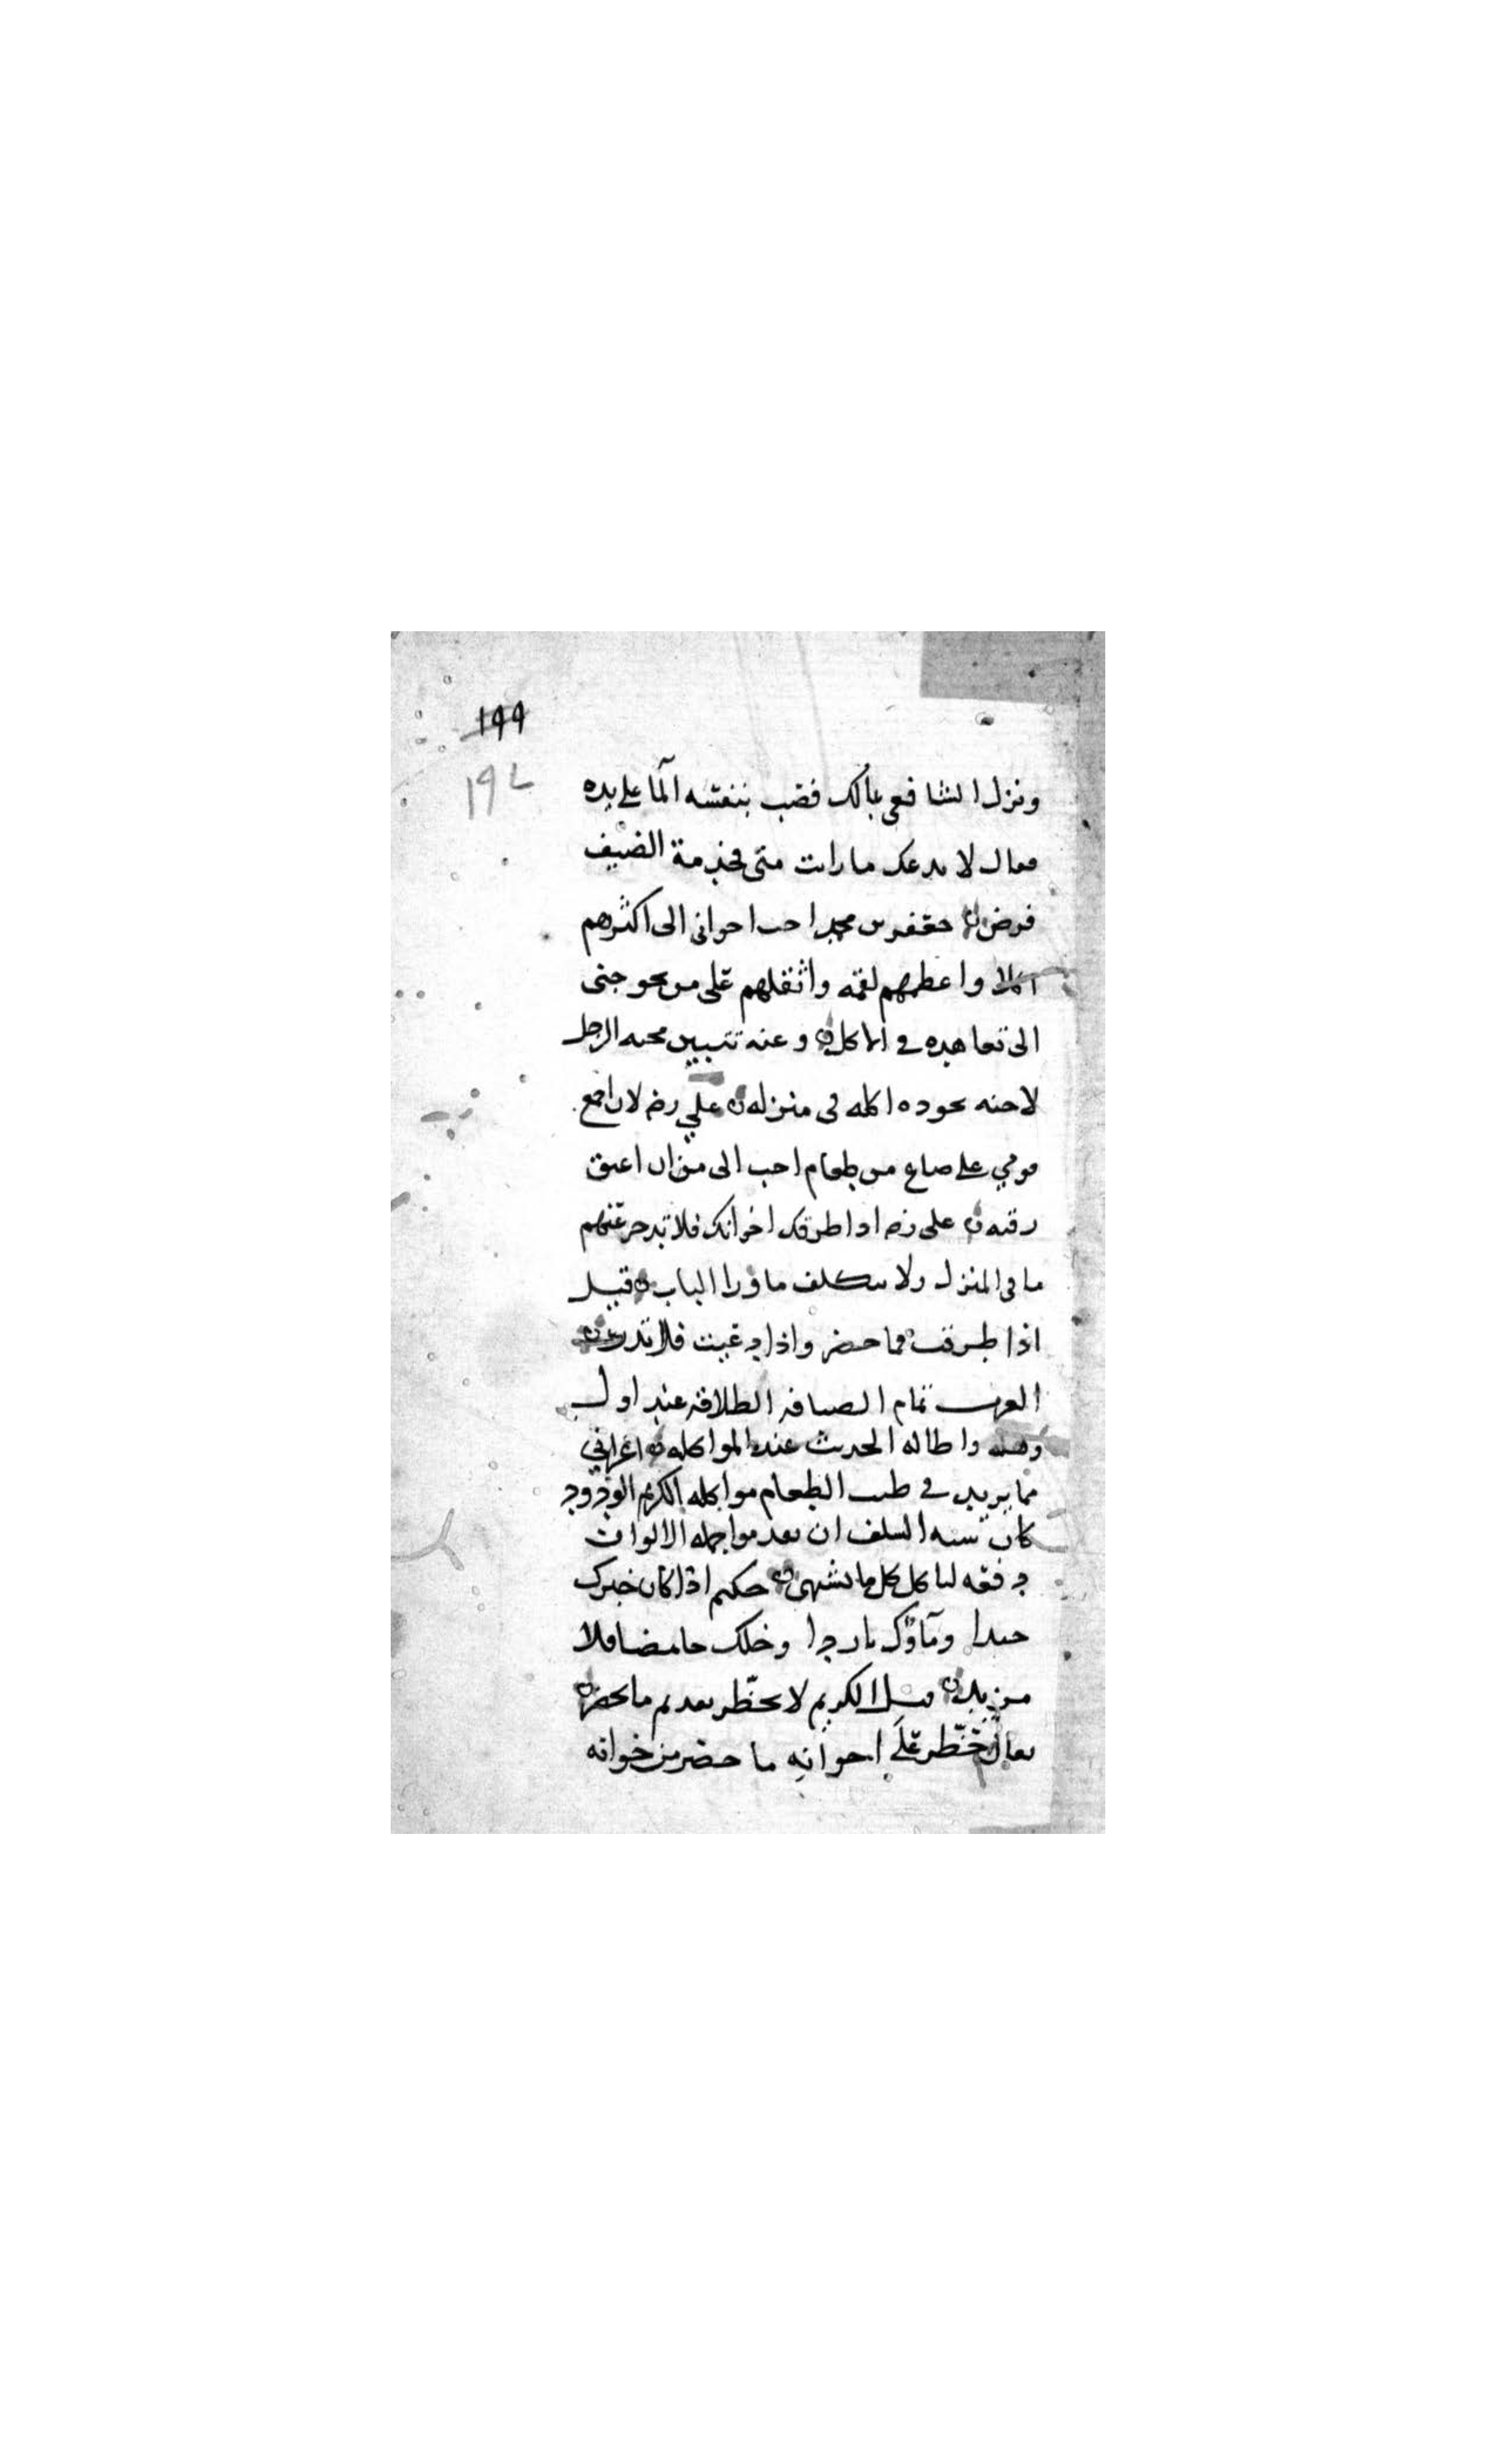 ١٩٩
١٩٢
ونزل الشافعي بمالك فصب بنفسه الما على يده
فقال لا يدعك ما رايت مني فخدمة الضيف
فرض جعفر بن محمد احب اخواني الى اكثرهم
اكلا واعظمهم لقمه واثقلهم على من يحوجني
الى تعاهده في الماكل وعنه تتبين محبه الرجل
لاخيه بجوده اكله في منزله علي رضه لان اجمع
قومي على صاع من طعام احب الى من ان اعتق
رقبه على رضه اذا طرقك اخوانك فلا تدخر عنهم
ما في المنزل ولا تتكلف ما ورا الباب قيل
اذا طرقت فما حضر واذا دعيت فلا تذر
العرب تمام الضيافه الطلاقه عند اول
وهله واطاله الحديث عند المواكله اعرابي
مما يزيد في طيب الطعام مواكله الكريم الودود
كان سنه السلف ان يقدموا جمله الالوان
دفعه لياكل كل ما يشتهي حكيم اذا كان خبزك
جيدا وماؤك باردا وخلك حامضا فلا
مزيد قيل الكريم لا يحظر تقديم ما يحضر
يقال حظر على اخوانه ما حضر من خوانه